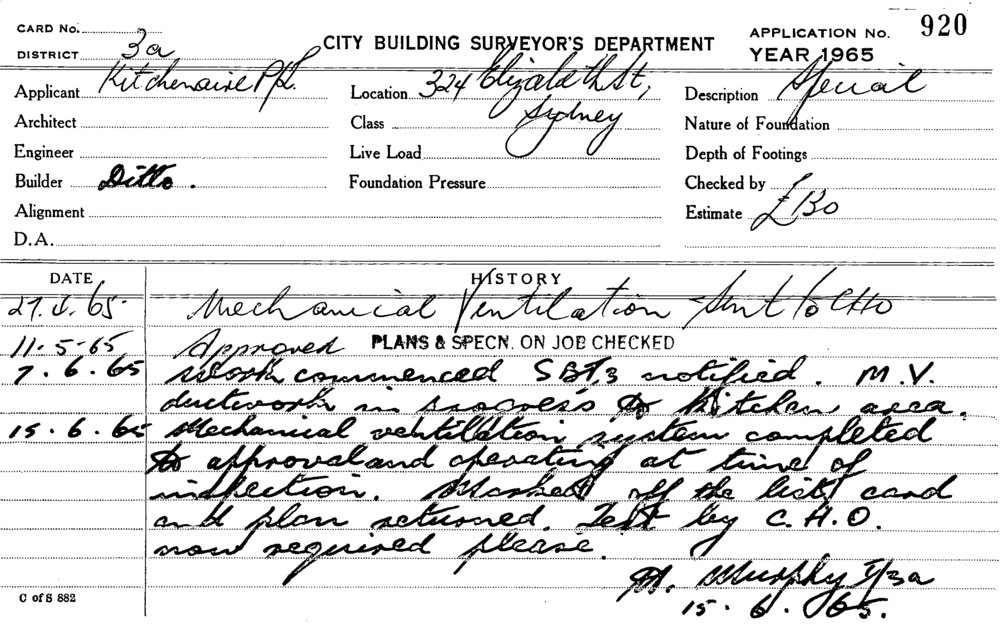 CARD No.
DISTRICT 3a
CITY BUILDING SURVEYOR'S DEPARTMENT
APPLICATION No. 920
YEAR 1965
Applicant Kitchenaire P/L.
Location 324 Elizabeth St,
Sydney
Description Special
Architect
Class
Nature of Foundation
Engineer
Live Load
Depth of Footings
Builder Ditto.
Foundation Pressure
Checked by
Alignment
Estimate £130
D.A.
DATE HISTORY
27.4.65 Mechanical Ventilation Sent to CHO
11-5-65 Approved PLANS & SPECN. ON JOB CHECKED
7.6.65 Work commenced SBI,3 notified. M.V.
ductwork in progress to Kitchen area.
15.6.65 Mechanical ventilation system completed
to approval and operating at time of
inspection. Marked off the list card
and plan returned. Test by C.H.O.
now required please.
Murphy I/3a
15.6.65.
C of S 882